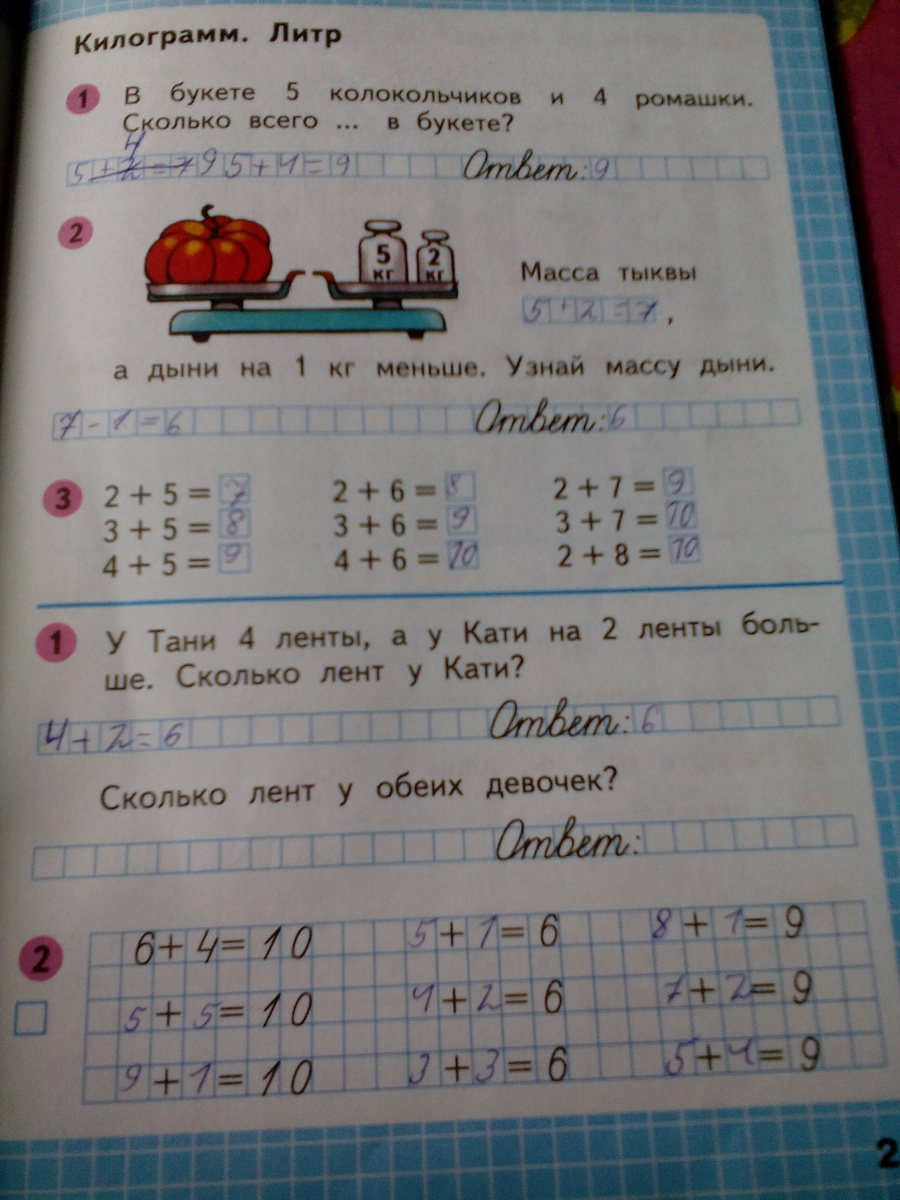 Килограмм. Литр
1 В букете 5 колокольчиков и 4 ромашки.
Сколько всего ... в букете?
4
5 + 2 = 7 9 5 + 4 = 9 Ответ: 9
2
5 кг 2 кг
Масса тыквы
5 + 2 = 7 ,
а дыни на 1 кг меньше. Узнай массу дыни.
7 - 1 = 6 Ответ: 6
3 2 + 5 = 7 2 + 6 = 8 2 + 7 = 9
3 + 5 = 8 3 + 6 = 9 3 + 7 = 10
4 + 5 = 9 4 + 6 = 10 2 + 8 = 10
1 У Тани 4 ленты, а у Кати на 2 ленты боль-
ше. Сколько лент у Кати?
4 + 2 = 6 Ответ: 6
Сколько лент у обеих девочек?
Ответ:
2 6 + 4 = 10 5 + 1 = 6 8 + 1 = 9
5 + 5 = 10 4 + 2 = 6 7 + 2 = 9
9 + 1 = 10 3 + 3 = 6 5 + 4 = 9
2